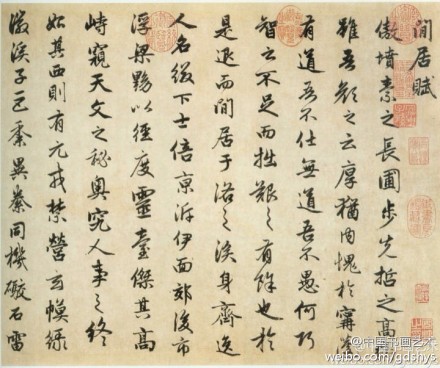 閒居賦
傲墳素之長圃步先哲之高
雖吾顏之云厚猶內愧於甯蘧
有道吾不仕無道吾不愚何巧
智之不足而拙艱之有餘也於
是退而閒居于洛之涘身齊逸
人名綴下士倍京泝伊面郊後市
浮梁黝以徑度靈臺傑其高
峙窺天文之秘奧究人事之終
始其西則有元戎禁營玄幙綠
徽溪子巨黍異絭同機礮石雷
@中国书画艺术
weibo.com/gdshys